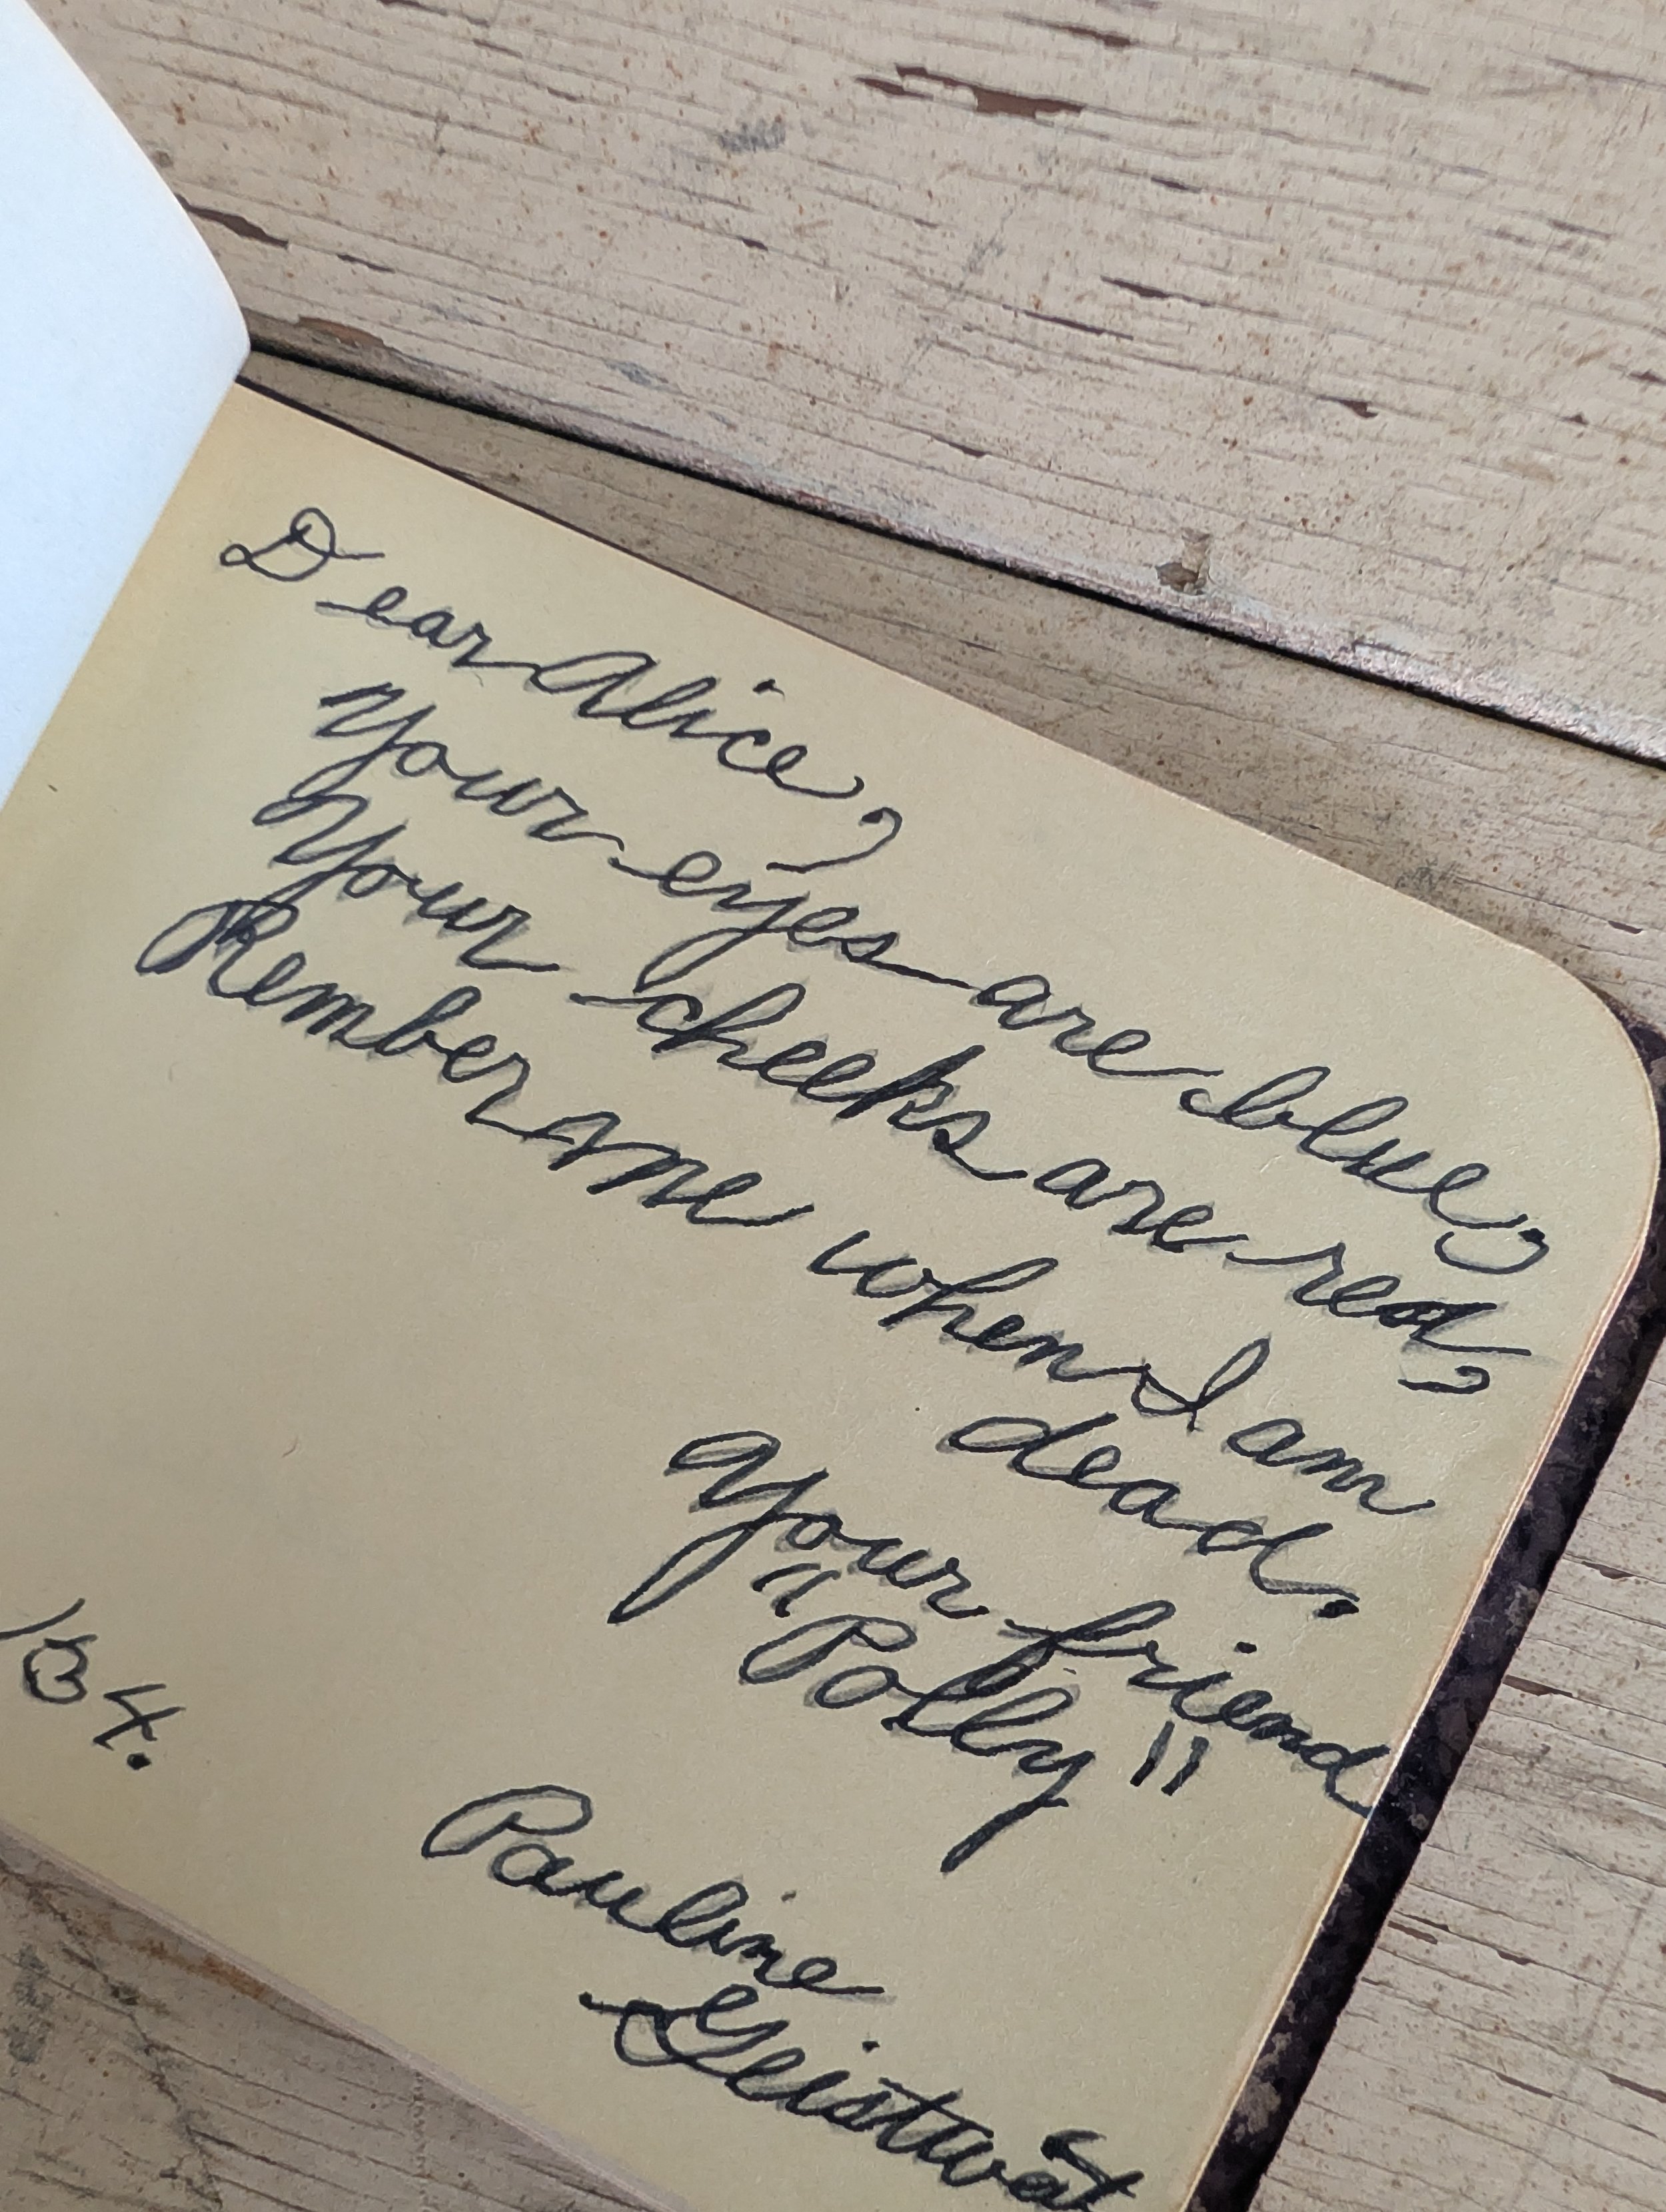 Dear Alice,
Your eyes are blue,
Your cheeks are red,
Rember me when I am
dead.
Your friend
"Polly"
Pauline
134.